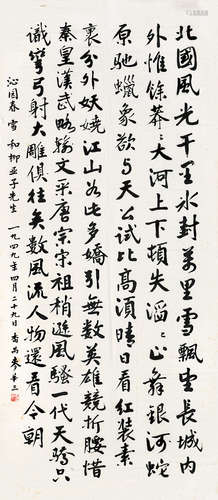 北國風光千里冰封萬里雪飄望長城內
外惟餘莽〻大河上下頓失滔〻山舞銀蛇
原馳蠟象欲与天公試比高須晴日看紅裝素
裹分外妖嬈江山如此多嬌引無數英雄競折腰惜
秦皇漢武略輸文采唐宗宋祖稍遜風騷一代天驕只
識彎弓射大雕俱往矣數風流人物還看今朝
沁園春 雪 和柳亞子先生 一九四九年四月二十九日